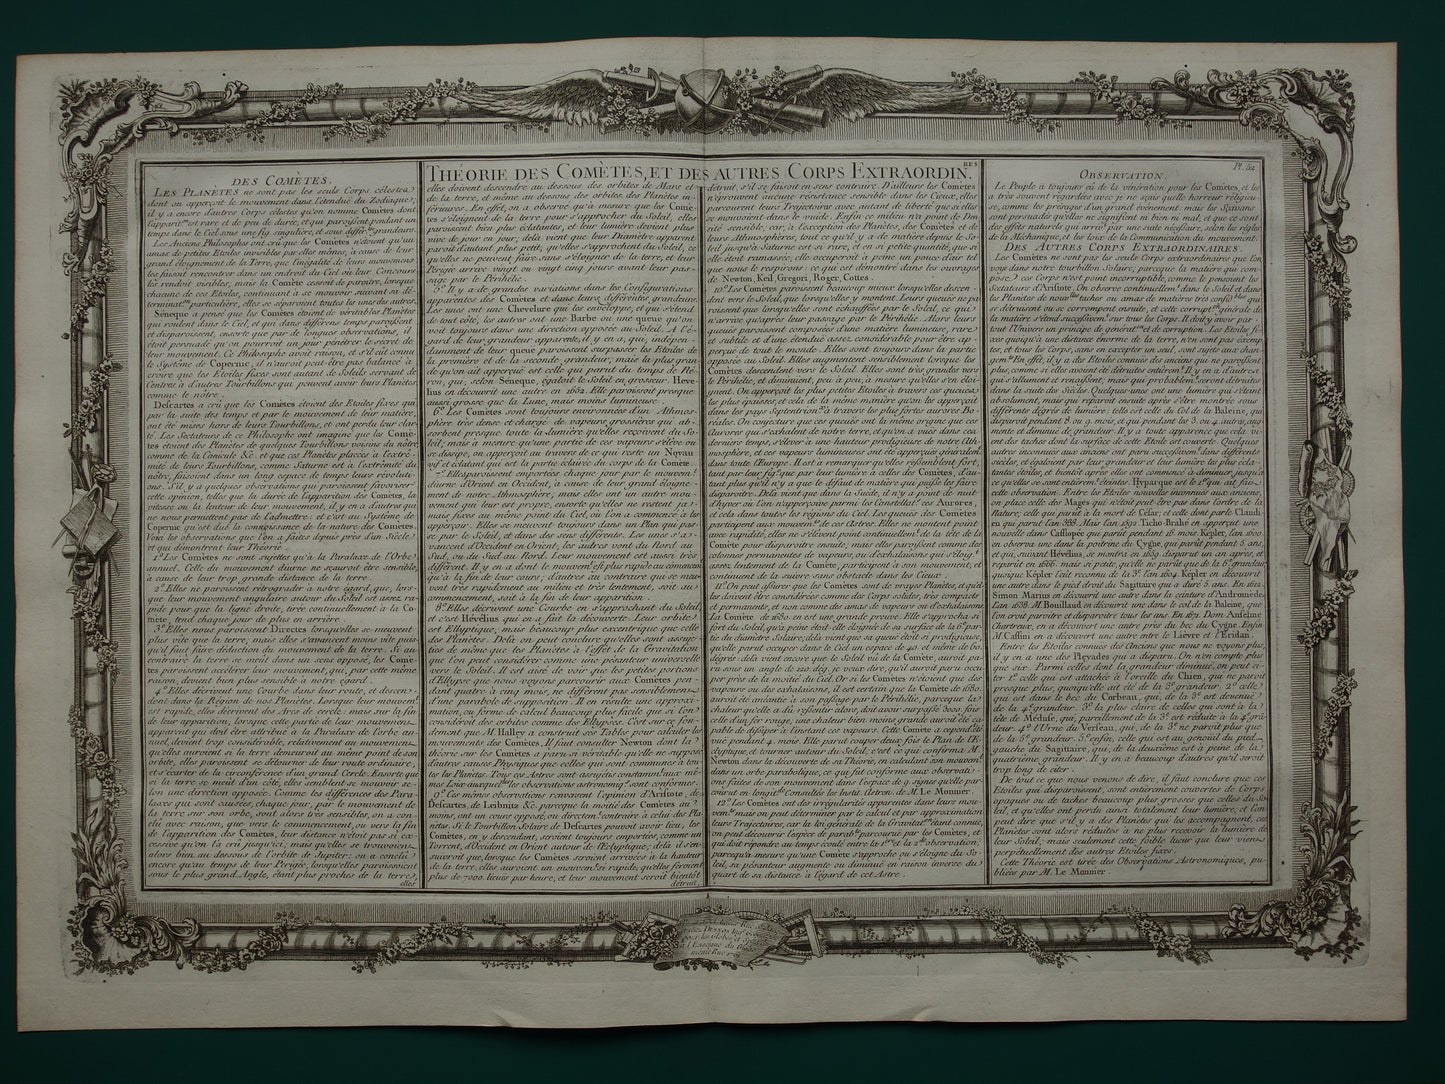 THÉORIE DES COMÈTES, ET DES AUTRES CORPS EXTRAORDIN.RES
Pl. 52
DES COMÈTES.
LES PLANÈTES ne sont pas les seuls Corps célestes
dont on apperçoit le mouvement dans l'étendué du Zodiaque;
il y a encore d'autres Corps célestes qu'on nomme Comètes dont
l'apparit.on est rare et de peu de durée, et qui paroissent, pendant un
tems dans le Ciel sous une fig. singuliere, et sous differ.tes grandeurs.
Les Anciens Philosophes ont crû que les Comètes n'étoient qu'un
amas de petites Etoiles invisibles par elles mêmes, à cause de leur
grand éloignement de la Terre, que l'inégalité de leurs mouvemens
les faisoit rencontrer dans un endroit du Ciel où leur Concours
les rendoit visibles, mais la Comète cessoit de paroitre, lorsque
chacune de ces Etoiles, continuant à se mouvoir suivant sa dé-
termination particulière, elles se séparoient toutes les unes des autres.
Sénéque a pensé que les Comètes étoient de véritables Planètes
qui rouloient dans le Ciel, et qui dans différens temps paroissoient
et disparoissoient, ensorte que par de longues observations, il
étoit persuadé qu'on pourroit un jour pénétrer le secret de
leur mouvement. Ce Philosophe avoit raison, et s'il eût connu
le Systême de Copernic, il n'auroit peut-être pas balancé à
croire que les Etoiles fixes sont autant de Soleils servant de
Centres à d'autres Tourbillons qui peuvent avoir leurs Planètes
comme le nôtre.
Descartes a crû que les Comètes étoient des Etoiles fixes qui,
par la suite des temps et par le mouvement de leur matière,
ont été mises hors de leurs Tourbillons, et ont perdu leur clar-
té. Les Sectateurs de ce Philosophe ont imaginé que les Comè-
tes étoient des Planètes de quelques Tourbillons voisins du nôtre
comme de la Canicule &c. et que ces Planètes placées à l'extré-
mité de leurs Tourbillons, comme Saturne est à l'extrémité du
nôtre, faisoient dans un long espace de temps leurs révolu-
tions. S'il y a quelques observations qui paroissent favoriser
cette opinion, telles que la durée de l'apparition des Comètes, la
vitesse ou la lenteur de leur mouvement, il y en a d'autres qui
ne nous permettent pas de l'admettre; et c'est au Systême de
Copernic qu'est dûe la connoissance de la nature des Comètes.
Voici les observations que l'on a faites depuis près d'un Siècle
et qui démontrent leur Théorie.
1.° Les Comètes ne sont sujettes qu'à la Paralaxe de l'Orbe
annuel. Celle du mouvement diurne ne sçauroit être sensible,
à cause de leur trop grande distance de la terre.
2.° Elles ne paroissent retrograder à notre égard, que, lors-
que leur mouvement angulaire autour du Soleil est assez ra-
pide pour que la ligne droite, tirée continuellement à la Co-
mète, tend chaque jour de plus en arrière.
3.° Elles nous paroissent Directes lorsqu'elles se meuvent
plus vîte que la terre, mais elles s'avancent moins vite puis-
qu'il faut faire déduction du mouvement de la terre. Si au
contraire la terre se meut dans un sens opposé, les Comè-
tes paroissent accélerer leur mouvement, qui, par cette même
raison, devient bien plus sensible à notre égard.
4.° Elles décrivent une Courbe dans leur route, et descen-
dent dans la Région de nos Planètes. Lorsque leur mouvem.t
est rapide, elles décrivent des Arcs de cercle, mais sur la fin
de leur apparition, lorsque cette partie de leur mouvement
apparent qui doit être attribué à la Paralaxe de l'orbe an-
nuel, devient trop considérable, relativement au mouvement
qu'elles auroient si la terre demeuroit au même point de son
orbite, elles paroissent se détourner de leur route ordinaire,
et s'écarter de la circonférence d'un grand Cercle. Ensorte que
si la terre se meut d'un côté, elles semblent se mouvoir se-
lon une direction opposée. Comme les différences des Para-
laxes qui sont causées, chaque jour, par le mouvement de
la terre sur son orbe, sont alors très sensibles, on a con-
clû avec raison, que vers le commencement, ou vers la fin
de l'apparition des Comètes, leur distance n'étoit pas si ex-
cessive qu'on l'a crû jusqu'ici; mais qu'elles se trouvoient
alors bien au dessous de l'orbite de Jupiter; on a conclû
encore qu'au temps de leur Perigée, lorsqu'elles paroissoient
sous le plus grand Angle, étant plus proches de la terre,
elles
elles doivent descendre au dessous des orbites de Mars et
de la terre, et même au dessous des orbites des Planètes in-
férieures. En effet, on a observé qu'à mesure que les Comè-
tes s'éloignent de la terre pour s'approcher du Soleil, elles
paroissent bien plus éclatantes, et leur lumière devient plus
vive de jour en jour, delà vient que leurs Diamètre apparent
paroit d'autant plus petit, qu'elles s'approchent du Soleil, ce
qu'elles ne peuvent faire sans s'éloigner de la terre, et leur
Périgée arrive vingt ou vingt cinq jours avant leur pas-
sage par le Périhelie.
5.° Il y a de grandes variations dans les Configurations
apparentes des Comètes et dans leurs différentes grandeurs.
Les unes ont une Chevelure qui les enveloppe, et qui s'étend
de tout côté, les autres ont une Barbe ou une queue qu'on
voit toujours dans une direction opposée au Soleil. A l'é-
gard de leur grandeur apparente, il y en a, qui, indépen-
damment de leur queue paroissent surpasser les Etoiles de
la première et de la seconde grandeur; mais la plus gran-
de qu'on ait apperçû est celle qui parut du temps de Né-
ron, qui, selon Séneque, égaloit le Soleil en grosseur. Heve-
lius en découvrit une autre en 1652. Elle paroissoit presque
aussi grosse que la Lune, mais moins lumineuse.
6.° Les Comètes sont toujours environnées d'un Athmos-
phère très dense et chargée de vapeurs grossières qui ab-
sorbent presque toute la lumière qu'elles reçoivent du So-
leil, mais à mesure qu'une partie de ces vapeurs s'élève ou
se dissipe, on apperçoit au travers de ce qui reste un Noyau
vif et éclatant qui est la partie claire du corps de la Comète.
7.° Elles paroissent emportées chaque jour par le mouvem.t
diurne d'Orient en Occident, à cause de leur grand éloigne-
ment de notre Athmosphère; mais elles ont un autre mou-
vement qui leur est propre, ensorte qu'elles ne restent ja-
mais fixes au même point du Ciel, où l'on a commencé à les
appercevoir. Elles se meuvent toujours dans un Plan qui pas-
se par le Soleil, et dans des sens différents. Les unes s'a-
vancent d'Occident en Orient, les autres vont du Nord au
Sud, ou du Sud au Nord. Leur mouvement est aussi très
différent. Il y en a dont le mouvem.t est plus rapide au commencem.t
qu'à la fin de leur cours; d'autres au contraire qui se meu-
vent très rapidement au milieu et très lentement, soit au
commencement, soit à la fin de leur apparition.
8.° Elles décrivent une Courbe en s'approchant du Soleil,
et c'est Hévélius qui en a fait la découverte. Leur orbite
est Elliptique, mais beaucoup plus excentrique que celle
des Planètes. Delà on peut conclure qu'elles sont assujé-
ties de même que les Planètes à l'effet de la Gravitation
que l'on peut considérer comme une pésanteur universelle
vers le Soleil. Il est aisé de voir que les petites portions
d'Ellypse que nous voyons parcourir aux Comètes pen-
dant quatre à cinq mois, ne diffèrent pas sensiblement
d'une parabole de supposition. Il en résulte une approxi-
mation, ou forme de calcul beaucoup plus facile que si l'on
considéroit des orbites comme des Ellypses. C'est sur ce fon-
dement que M. Halley a construit ses Tables pour calculer les
mouvements des Comètes. Il faut consulter Newton dont la
théorie sur les Comètes a paru si véritable qu'elle ne suppose
d'autres causes Physiques que celles qui sont communes à tou-
tes les Planètes. Tous ces Astres sont assujétis constamm.t aux mê-
mes Loix auxquelles les observations astronomiq.s sont conformes.
9.° Ces mêmes observations renversent l'opinion d'Aristote, de
Descartes, de Leibnitz &c. parceque la moitié des Comètes au
moins, ont un cours opposé, ou direction contraire à celui des Pla-
nètes. Si le Tourbillon Solaire de Descartes pouvoit avoir lieu, les
Comètes, en y descendant, seroient toujours emportées, comme un
Torrent, d'Occident en Orient autour de l'Ecliptique; delà il s'en-
suivroit que, lorsque les Comètes seroient arrivées à la hauteur
de la terre, elles auroient un mouvem.t si rapide, qu'elles feroient
plus de 7000. lieues par heure, et leur mouvement seroit bientôt
détruit,
détruit, s'il se faisoit en sens contraire. D'ailleurs les Comètes
n'éprouvent aucune résistance sensible dans les Cieux, elles
parcourent leurs Trajectoires avec autant de liberté que si elles
se mouvoient dans le vuide. Enfin ce milieu n'a point de Den-
sité sensible, car, à l'exception des Planètes, des Comètes et de
leurs Athmosphères, tout ce qu'il y a de matière depuis le So-
leil jusqu'à Saturne est si rare, et en si petite quantité, que si
elle étoit ramassée, elle occuperoit à peine un pouce d'air tel
que nous le respirons: ce qui est démontré dans les ouvrages
de Newton, Keil, Gregori, Roger, Cottes.
10.° Les Comètes paroissent beaucoup mieux lorsqu'elles descen-
dent vers le Soleil, que lorsqu'elles y montent. Leurs queues ne pa-
roissent que lorsqu'elles sont échauffées par le Soleil, ce qui
n'arrive qu'après leur passage par le Périhelie. Alors leurs
queues paroissent composées d'une matière lumineuse, rare
et subtile et d'une étendue assez considérable pour être ap-
perçue de tout le monde. Elles sont toujours dans la partie
opposée au Soleil. Elles augmentent sensiblement lorsque les
Comètes descendent vers le Soleil. Elles sont très grandes vers
le Périhélie, et diminuent, peu à peu, à mesure qu'elles s'en éloi-
gnent. On apperçoit les plus petites Etoiles à travers ces queues
les plus épaisses, et cela de la même manière qu'on les apperçoit
dans les pays Septentrion.x à travers les plus fortes aurores Bo-
réales. On conjecture que ces queues ont la même origine que ces
Aurores qui s'exhalent de notre terre, et qu'on a vues dans ces
derniers temps, s'élever à une hauteur prodigieuse de notre Ath-
mosphère, et ces vapeurs lumineuses ont été apperçues généralem.t
dans toute l'Europe. Il est à remarquer qu'elles ressemblent fort,
tant par leur fig.re que par leur lumière à celles des Comètes, d'au-
tant plus qu'il n'y a que le défaut de matière qui puisse les faire
disparoitre. Delà vient que dans la Suéde, il n'y a point de nuit
d'hyver où l'on n'apperçoive parmi les Constellat.s ces Aurores,
et cela dans toutes les régions du Ciel. Les queues des Comètes
participent aux mouvem.ts de ces Astres. Elles ne doivent point
avec rapidité, elles ne s'élévent point continuellem.t de la tête de la
Comète pour disparoitre ensuite; mais elles paroissent comme des
colonnes permanentes de vapeurs, ou d'exhalaisons qui s'éloig.t
assez lentement de la Comète, participent à son mouvement, et
continuent de la suivre sans obstacle dans les Cieux.
11.° On peut assûrer que les Comètes sont de vrayes Planètes, et qu'el-
les doivent être considérées comme des Corps solides, très compacts
et permanents, et non comme des amas de vapeurs ou d'exhalaisons.
La Comète de 1680. en est une grande preuve. Elle s'approcha si
fort du Soleil, qu'à peine étoit elle éloignée de sa surface de la 6.e par-
tie du diamètre Solaire; delà vient que sa queue étoit si prodigieuse,
qu'elle parut occuper dans le Ciel un espace de 40. et même de 60.
dégrés: delà vient encore que le Soleil vû de la Comète, auroit pa-
ru sous un angle de 100. dég. je veux dire qu'il auroit paru occu-
per près de la moitié du Ciel. Or si les Comètes n'étoient que des
vapeurs ou des exhalaisons, il est certain que la Comète de 1680.
auroit été anéantie à son passage par le Périhelie, parceque la
chaleur qu'elle a dû ressentir alors, doit avoir surpassé 2000. fois
celle d'un fer rouge, une chaleur bien moins grande auroit été ca-
pable de dissiper à l'instant ces vapeurs. Cette Comète a cepend.t été
vue pendant 4. mois. Elle parut couper deux fois le Plan de l'E-
clyptique, et tourner autour du Soleil, c'est ce qui confirma M.
Newton dans la découverte de sa Théorie, en calculant son mouvem.t
dans un orbe parabolique, ce qui fût conforme aux observati-
ons faites de son mouvement dans l'espace de 9. signes qu'elle par-
courut en longit.de Consultés les Instit. Astron. de M. Le Monnier.
12.° Les Comètes ont des irrégularités apparentes dans leurs mou-
vem.ts mais on peut déterminer par le calcul et par approximation
leurs Trajectoires, car la loi générale de la Gravitat.on étant connue,
on peut découvrir l'espèce de parab.le parcourue par les Comètes, et
qui doit répondre au temps écoulé entre la 1.ere et la 2.de observation;
parcequ'à mesure qu'une Comète s'approche ou s'éloigne du So-
leil, sa pésanteur augmente ou diminue en raison inverse du
quart de sa distance à l'égard de cet Astre.
OBSERVATION.
Le Peuple a toujours eû de la vénération pour les Comètes, et les
a très souvent regardées avec je ne sçais quelle horreur religieu-
se, comme les présages d'un grand événement: mais les Sçavans
sont persuadés qu'elles ne signifient ni bien ni mal, et que ce sont
des effets naturels qui arrivent par une suite nécessaire, selon les règles
de la Méchanique, et les loix de la Communication du mouvement.
DES AUTRES CORPS EXTRAORDINAIRES.
Les Comètes ne sont pas les seuls Corps extraordinaires que l'on
voye dans notre tourbillon Solaire, parceque la matière qui com-
pose ces Corps n'est point incorruptible, comme le pensoient les
Sectateurs d'Aristote. On observe continuellem.t dans le Soleil et dans
les Planètes de nouv.lles taches ou amas de matières très considér.bles qui
se détruisent ou se corrompent ensuite, et cette corrupt.on générale de
la matière s'étend successivem.t sur tous les Corps. Il doit y avoir par-
tout l'Univers un principe de générat.on et de corruption. Les Etoiles fi-
xes quoiqu'à une distance énorme de la terre, n'en sont pas exemp-
tes, et tous les Corps, sans en excepter un seul, sont sujets aux chan-
gem.ts En effet, il y a des Etoiles connues des anciens qui ne paroissent
plus, comme si elles avoient été détruites entièrem.t Il y en a d'autres
qui s'allument et renaissent; mais qui probablem.t seront détruites
dans la suite des Siècles. Quelques-unes ont une lumière qui s'éteint
absolument, mais qui réparoit ensuite après s'être montrée sous
différens dégrés de lumière: telle est celle du Col de la Baleine, qui
disparoit pendant 8. ou 9. mois, et qui pendant les 3. ou 4. autres, aug-
mente et diminue de grandeur. Il y a toute apparence que cela vi-
ent des taches dont la surface de cette Etoile est couverte. Quelques
autres inconnues aux anciens ont paru successivem.t dans différents
siècles, et égaloient par leur grandeur et leur lumière les plus écla-
tantes étoiles, et bientôt après elles commencoient à diminuer, jusqu'à
ce qu'elles se soient entièrem.t éteintes. Hyparque est le 1.er qui ait fait
cette observation. Entre les Etoiles nouvelles inconnues aux anciens,
on place celle des Mages qui n'étoit peut-être pas dans l'ordre de la
Nature, celle qui parut à la mort de César, et celle dont parle Claudi-
en qui parut l'an 388. Mais l'an 1572 Ticho-Brahé en apperçut une
nouvelle dans Cassiopée qui parut pendant 16 mois. Kepler, l'an 1600.
en observa une dans la poitrine du Cygne, qui parut pendant 5. ans,
et qui, suivant Hévélius, se montra en 1659. disparut un an après, et
reparut en 1666. mais si petite, qu'elle ne parut que de la 6.e grandeur
quoique Képler l'eût reconnu de la 3.e l'an 1604. Kepler en découvrit
une autre dans le pied droit du Sagittaire qui a duré 2. ans. En 1612
Simon Marius en découvrit une autre dans la ceinture d'Androméde.
L'an 1638. M. Bouillaud en découvrit une dans le col de la Baleine, que
l'on croit paroître et disparoitre tous les ans. En 1671. Dom. Anselme
Chartreux, en a découvert une autre près du bec du Cygne. Enfin
M. Cassini en a découvert une autre entre le Lièvre et l'Eridan.
Entre les Etoiles connues des Anciens que nous ne voyons plus,
il y en a une des Pleyades qui a disparu. On n'en compte plus
que six. Parmi celles dont la grandeur diminue, on peut ci-
ter 1.° celle qui est attachée à l'oreille du Chien, qui ne paroit
presque plus, quoiqu'elle ait été de la 3.e grandeur. 2.° celle
qui est dans le bec du Corbeau, qui, de la 3.e est devenue
de la 4.e grandeur. 3.° la plus claire de celles qui sont à la
tête de Méduse, qui, pareillement de la 3.e est réduite à la 4.e grâ-
deur. 4.° l'Urne du Verseau, qui, de la 3.e ne paroit plus que
de la 5.e grandeur. 5.° enfin, celle qui est au genouil du pied
gauche du Sagittaire, qui, de la deuxième est à peine de la
quatrième grandeur. Il y en a beaucoup d'autres qu'il seroit
trop long de citer.
De tout ce que nous venons de dire, il faut conclure que ces
Etoiles qui disparoissent, sont entièrement couvertes de Corps
opaques ou de taches beaucoup plus grosses que celles du So-
leil, et qu'elles ont perdu ainsi totalement leur lumière, et l'on
peut dire que s'il y a des Planètes qui les accompagnent, ces
Planètes sont alors réduites à ne plus recevoir la lumière de
leur Soleil, mais seulement cette foible lueur que leur vient
perpétuellement des autres Etoiles fixes.
Cette Théorie est tirée des Observations Astronomiques, pu-
bliées par M. Le Monnier.